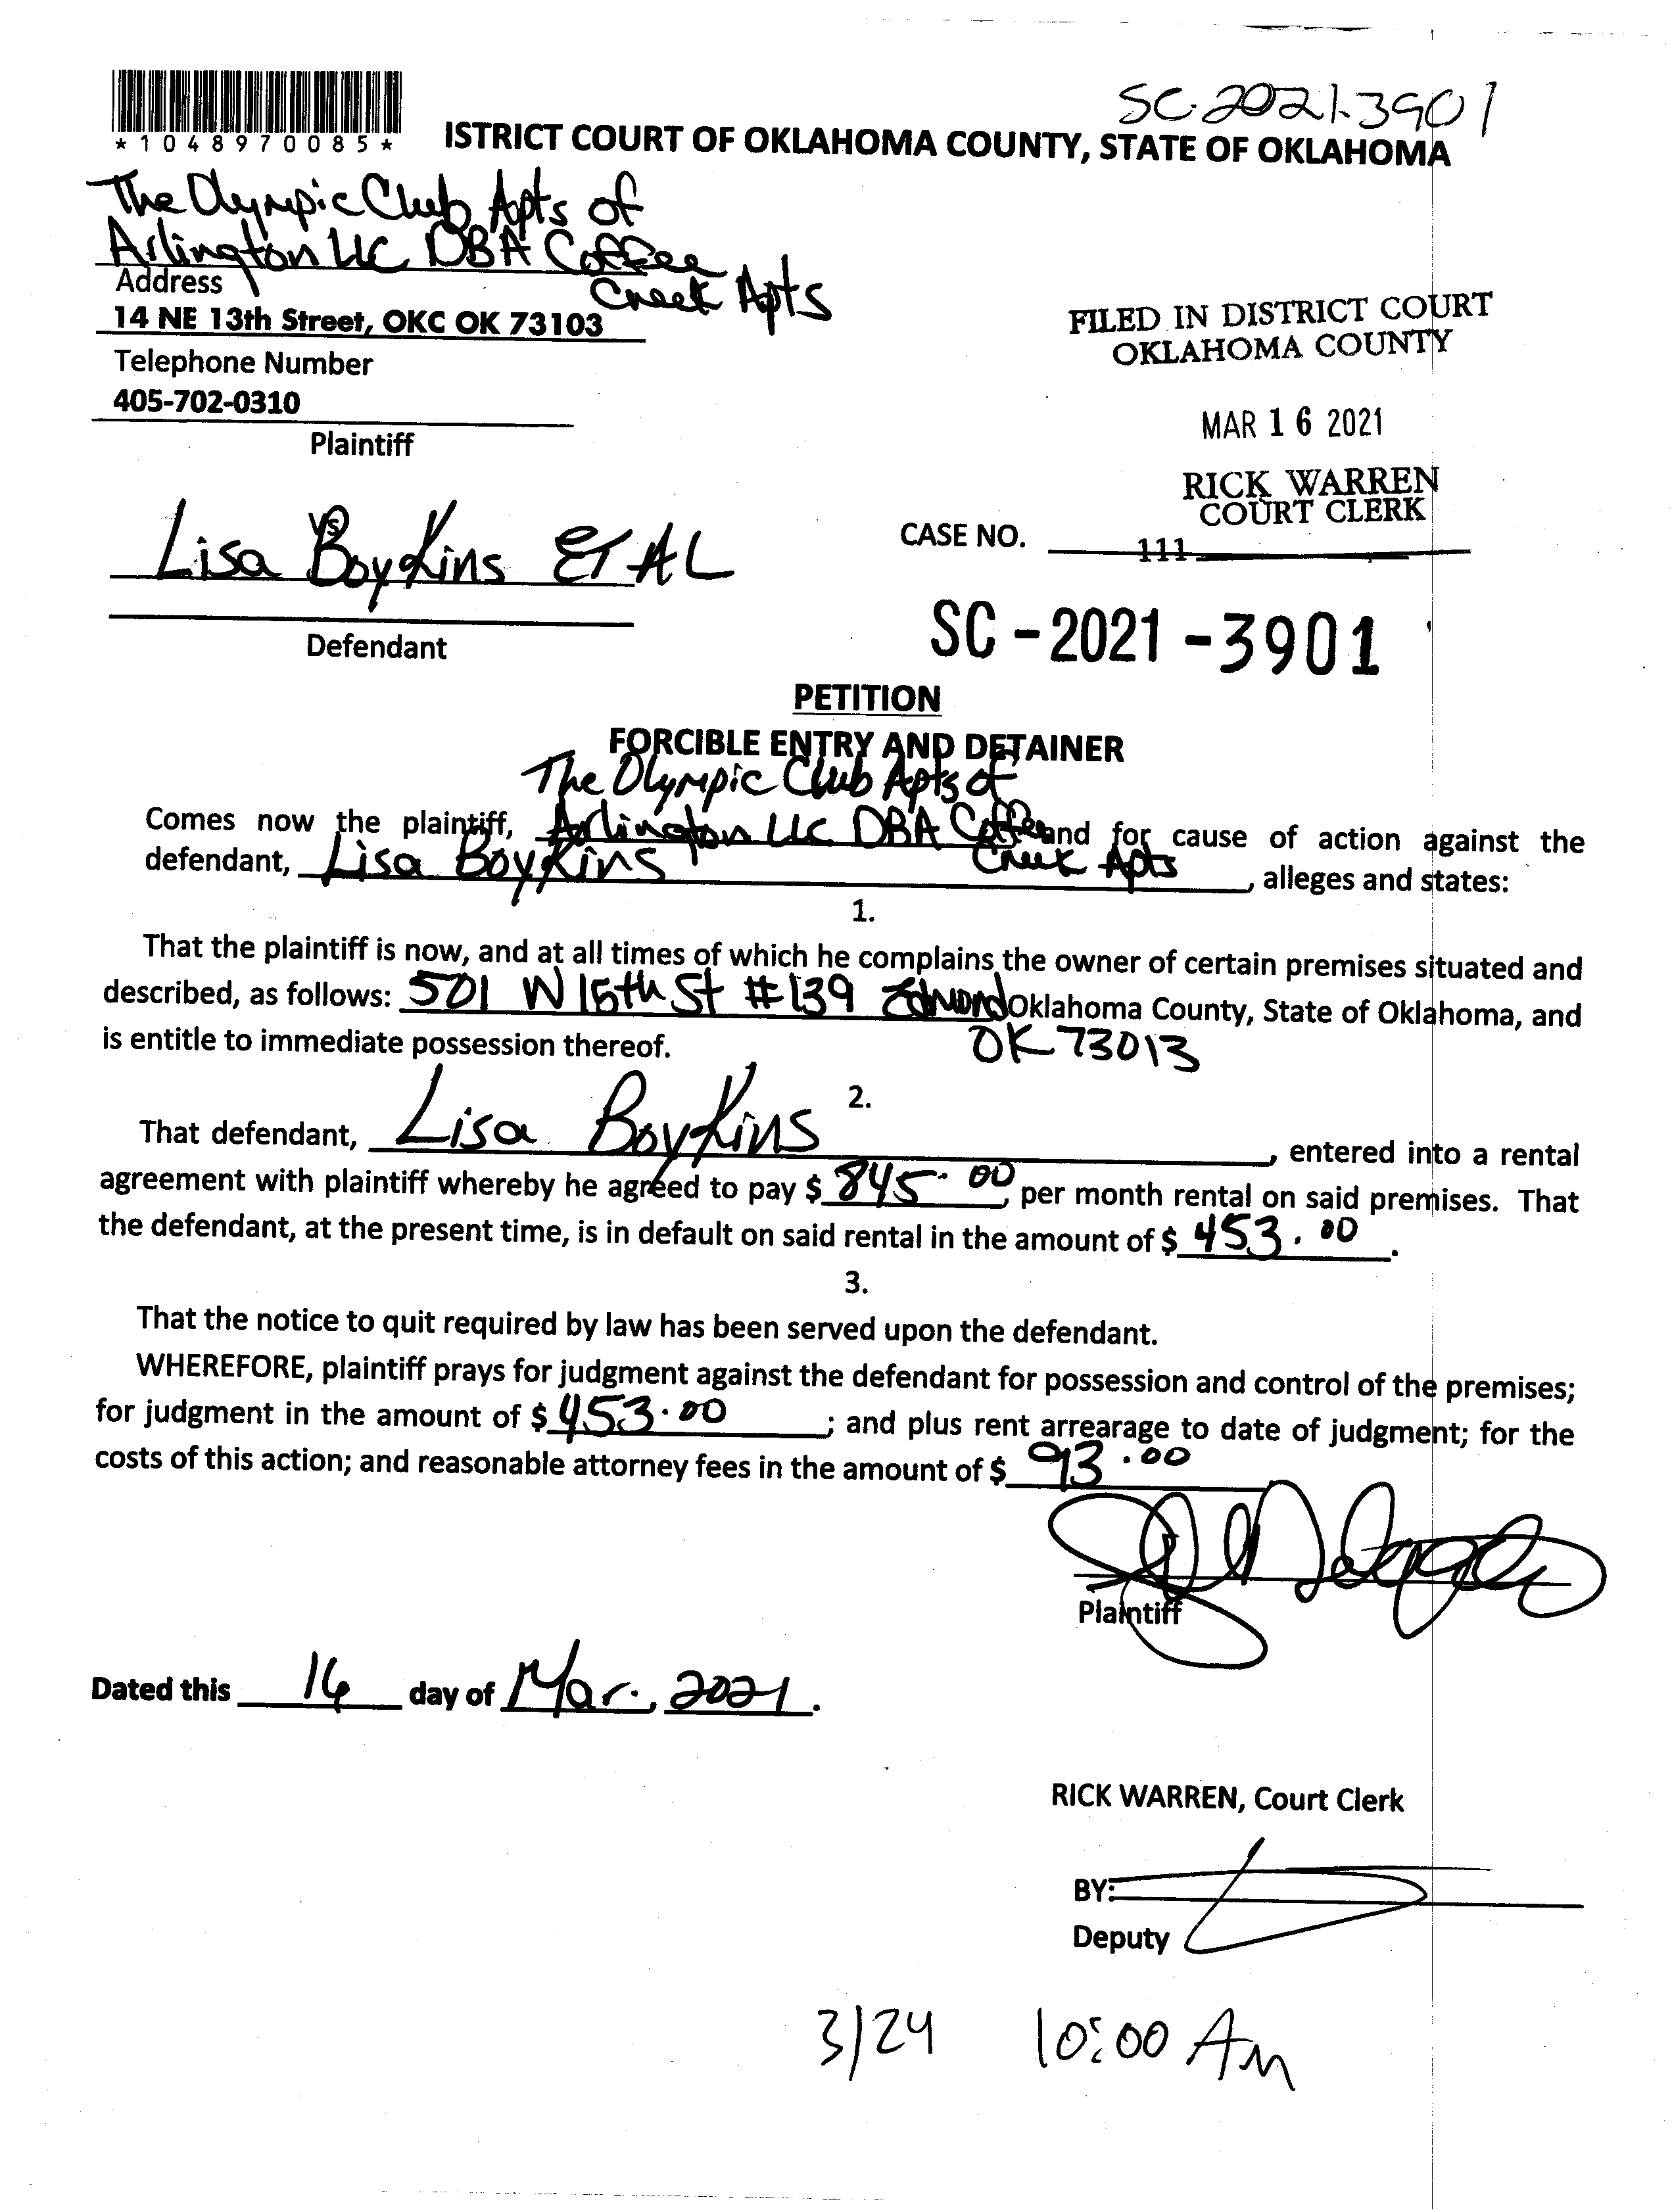 SC-2021-3901
*1048970085*
ISTRICT COURT OF OKLAHOMA COUNTY, STATE OF OKLAHOMA
The Olympic Club Apts of
Arlington LLC DBA Coffee
Creek Apts
Address
14 NE 13th Street, OKC OK 73103
Telephone Number
405-702-0310
Plaintiff
FILED IN DISTRICT COURT
OKLAHOMA COUNTY
MAR 16 2021
RICK WARREN
COURT CLERK
vs
Lisa Boykins ET AL
CASE NO.
111
Defendant
SC-2021-3901
PETITION
FORCIBLE ENTRY AND DETAINER
The Olympic Club Apts of
Comes now the plaintiff, Arlington LLC DBA Coffee and for cause of action against the
Creek Apts
defendant, Lisa Boykins, alleges and states:
1.
That the plaintiff is now, and at all times of which he complains the owner of certain premises situated and
described, as follows: 501 W 15th St #139 Edmond Oklahoma County, State of Oklahoma, and
is entitle to immediate possession thereof. OK 73013
2.
That defendant, Lisa Boykins, entered into a rental
agreement with plaintiff whereby he agreed to pay $ 845.00, per month rental on said premises. That
the defendant, at the present time, is in default on said rental in the amount of $ 453.00.
3.
That the notice to quit required by law has been served upon the defendant.
WHEREFORE, plaintiff prays for judgment against the defendant for possession and control of the premises;
for judgment in the amount of $ 453.00; and plus rent arrearage to date of judgment; for the
costs of this action; and reasonable attorney fees in the amount of $ 93.00
Plaintiff
Dated this 16 day of Mar., 2021.
RICK WARREN, Court Clerk
BY:
Deputy
3/24 10:00 Am